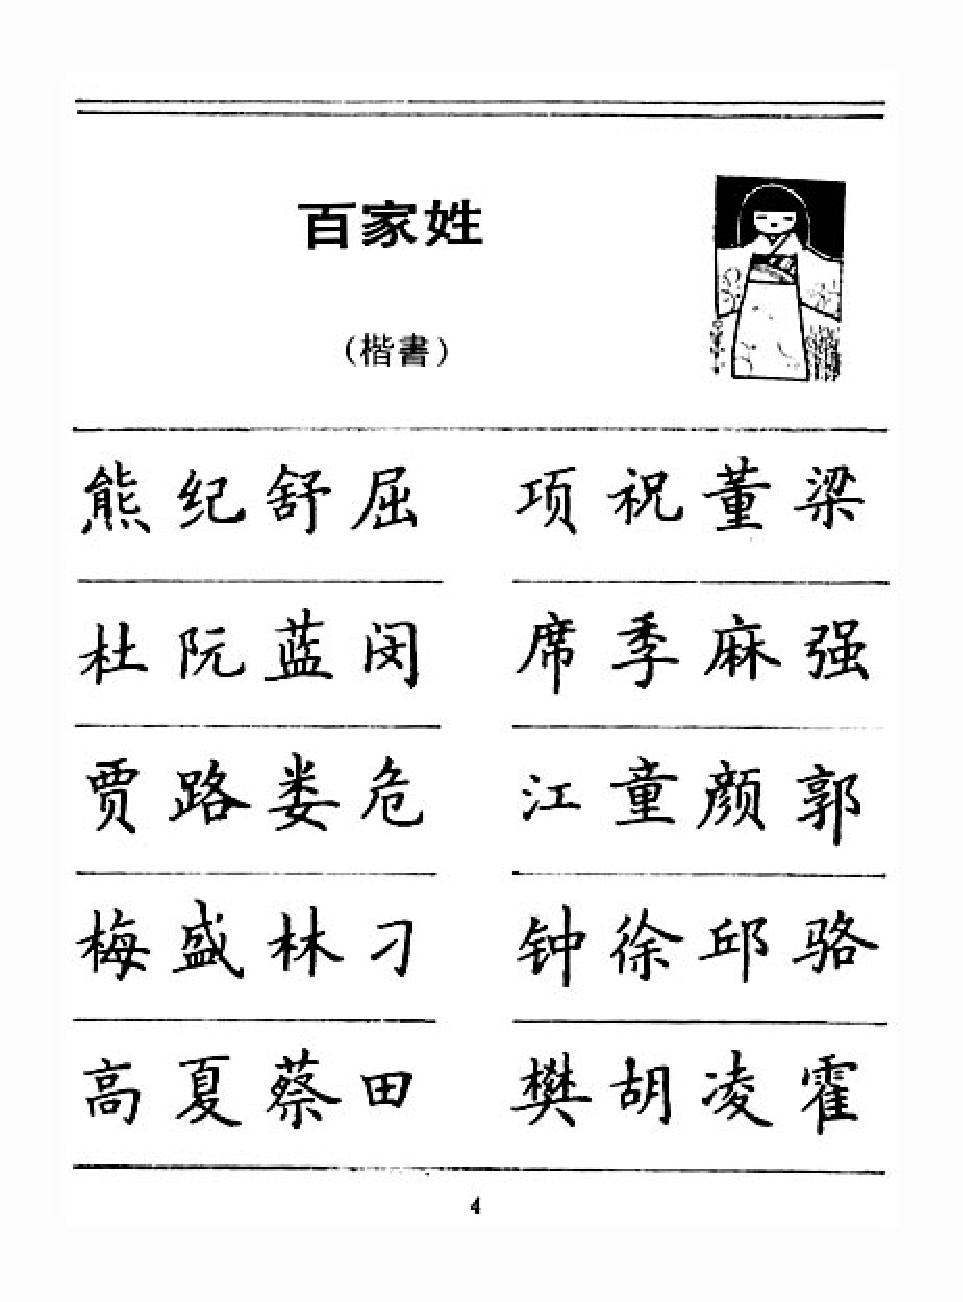 百家姓
(楷書)
熊纪舒屈 项祝董梁
杜阮蓝闵 席季麻强
贾路娄危 江童颜郭
梅盛林刁 钟徐邱骆
高夏蔡田 樊胡凌霍
4